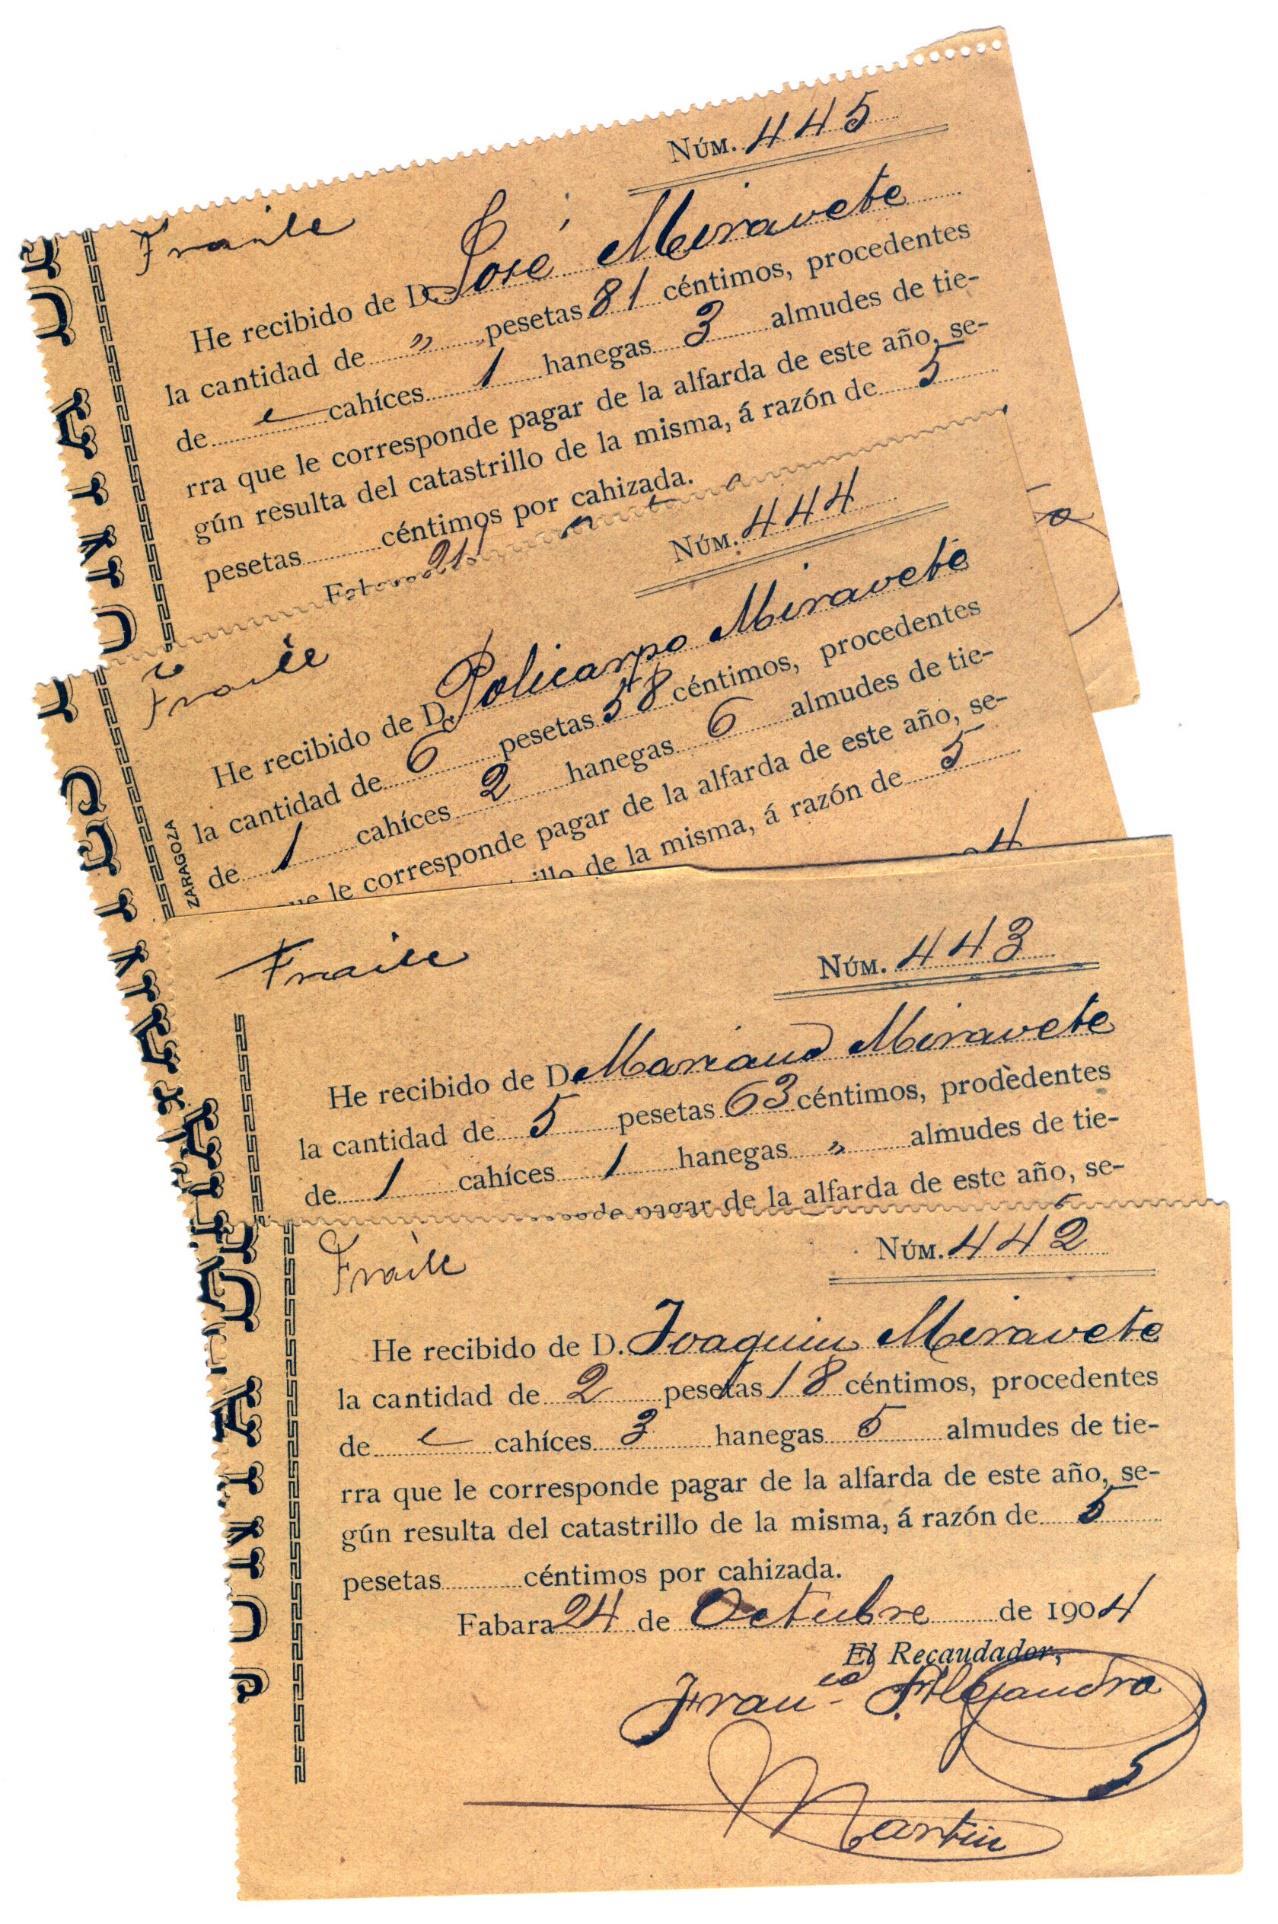 NÚM. 445
Fraile
He recibido de D. José Miravete
la cantidad de " pesetas 81 céntimos, procedentes
de cahíces 1 hanegas 3 almudes de tie-
rra que le corresponde pagar de la alfarda de este año, se-
gún resulta del catastrillo de la misma, á razón de 5
pesetas céntimos por cahizada.
NÚM. 444
Fraile
He recibido de D. Policarpo Miravete
la cantidad de 6 pesetas 58 céntimos, procedentes
de 1 cahíces 2 hanegas 6 almudes de tie-
que le corresponde pagar de la alfarda de este año, se-
de la misma, á razón de 5
4
ZARAGOZA
NÚM. 443
Fraile
He recibido de D. Mariano Miravete
la cantidad de 5 pesetas 63 céntimos, procedentes
de 1 cahíces 1 hanegas " almudes de tie-
pagar de la alfarda de este año, se-
NÚM. 442
Fraile
He recibido de D. Joaquin Miravete
la cantidad de 2 pesetas 18 céntimos, procedentes
de cahíces 3 hanegas 5 almudes de tie-
rra que le corresponde pagar de la alfarda de este año, se-
gún resulta del catastrillo de la misma, á razón de 5
pesetas céntimos por cahizada.
Fabara 24 de Octubre de 1904
El Recaudador,
Franco Alejandro
Martin